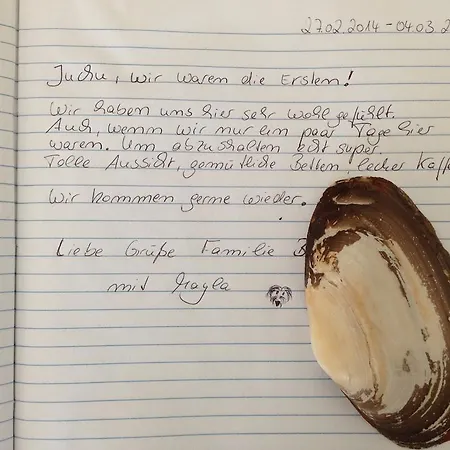 27.02.2014 - 04.03.2
Juchu, wir waren die Ersten!
Wir haben uns hier sehr wohl gefühlt.
Auch, wenn wir nur ein paar Tage hier
waren. Um abzuschalten echt super.
Tolle Aussicht, gemütliche Betten, lecker Kaff
Wir kommen gerne wieder.
Liebe Grüße Familie B
mit Hayla